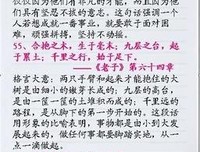 仅仅因为他们有非凡的才能，而且因为他
们具有坚忍不拔的意志。这句话强调一个
人若想成就一番事业，就要敢于面对困
难，顽强拼搏，坚持不动摇。
55、合抱之木，生于毫末；九层之台，起
于累土；千里之行，始于足下。
——《老子》第六十四章
格言大意：两只手臂和起来才能抱住的大
树是由细小的嫩芽长成的；九层的高台，
是由一筐一筐的土堆积而成的；千里远的
路程，是从脚下的第一步开始的。这段话
用形象的比喻表明，事物都是由小到大发
展起来的，做任何事都要脚踏实地，从一
点一滴做起。